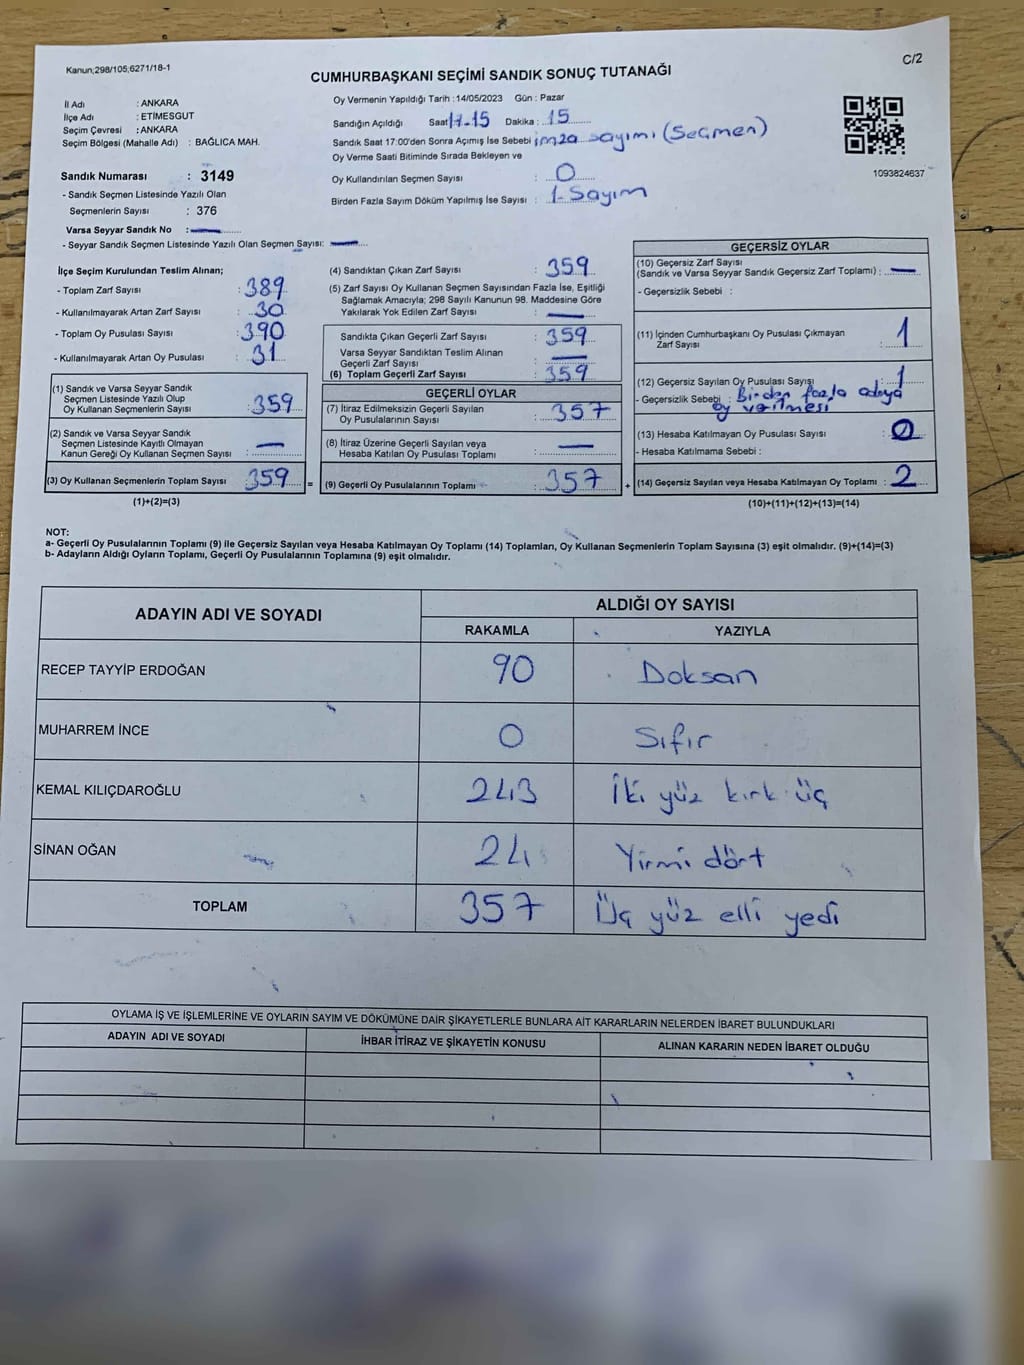 Kanun;298/105;6271/18-1
C/2
CUMHURBAŞKANI SEÇİMİ SANDIK SONUÇ TUTANAĞI
İl Adı : ANKARA
İlçe Adı : ETİMESGUT
Seçim Çevresi : ANKARA
Seçim Bölgesi (Mahalle Adı) : BAĞLICA MAH.
Sandık Numarası : 3149
- Sandık Seçmen Listesinde Yazılı Olan
Seçmenlerin Sayısı : 376
Varsa Seyyar Sandık No :
- Seyyar Sandık Seçmen Listesinde Yazılı Olan Seçmen Sayısı:
Oy Vermenin Yapıldığı Tarih :14/05/2023 Gün : Pazar
Sandığın Açıldığı Saat 17.15 Dakika : 15
Sandık Saat 17:00'den Sonra Açımış İse Sebebi imza sayımı (Seçmen)
Oy Verme Saati Bitiminde Sırada Bekleyen ve
Oy Kullandırılan Seçmen Sayısı : 0
Birden Fazla Sayım Döküm Yapılmış İse Sayısı : 1. Sayım
1093824637
İlçe Seçim Kurulundan Teslim Alınan;
- Toplam Zarf Sayısı : 389
- Kullanılmayarak Artan Zarf Sayısı : 30
- Toplam Oy Pusulası Sayısı : 390
- Kullanılmayarak Artan Oy Pusulası : 31
(1) Sandık ve Varsa Seyyar Sandık
Seçmen Listesinde Yazılı Olup
Oy Kullanan Seçmenlerin Sayısı : 359
(2) Sandık ve Varsa Seyyar Sandık
Seçmen Listesinde Kayıtlı Olmayan
Kanun Gereği Oy Kullanan Seçmen Sayısı : —
(3) Oy Kullanan Seçmenlerin Toplam Sayısı : 359 =
(1)+(2)=(3)
(4) Sandıktan Çıkan Zarf Sayısı : 359
(5) Zarf Sayısı Oy Kullanan Seçmen Sayısından Fazla İse, Eşitliği
Sağlamak Amacıyla; 298 Sayılı Kanunun 98. Maddesine Göre
Yakılarak Yok Edilen Zarf Sayısı : —
Sandıkta Çıkan Geçerli Zarf Sayısı : 359
Varsa Seyyar Sandıktan Teslim Alınan
Geçerli Zarf Sayısı : —
(6) Toplam Geçerli Zarf Sayısı : 359
GEÇERLİ OYLAR
(7) İtiraz Edilmeksizin Geçerli Sayılan
Oy Pusulalarının Sayısı : 357
(8) İtiraz Üzerine Geçerli Sayılan veya
Hesaba Katılan Oy Pusulası Toplamı : —
(9) Geçerli Oy Pusulalarının Toplamı : 357 +
GEÇERSİZ OYLAR
(10) Geçersiz Zarf Sayısı
(Sandık ve Varsa Seyyar Sandık Geçersiz Zarf Toplamı) : —
- Geçersizlik Sebebi :
(11) İçinden Cumhurbaşkanı Oy Pusulası Çıkmayan
Zarf Sayısı : 1
(12) Geçersiz Sayılan Oy Pusulası Sayısı : 1
- Geçersizlik Sebebi : Birden fazla adaya
oy verilmesi
(13) Hesaba Katılmayan Oy Pusulası Sayısı : 0
- Hesaba Katılmama Sebebi :
(14) Geçersiz Sayılan veya Hesaba Katılmayan Oy Toplamı : 2
(10)+(11)+(12)+(13)=(14)
NOT:
a- Geçerli Oy Pusulalarının Toplamı (9) ile Geçersiz Sayılan veya Hesaba Katılmayan Oy Toplamı (14) Toplamları, Oy Kullanan Seçmenlerin Toplam Sayısına (3) eşit olmalıdır. (9)+(14)=(3)
b- Adayların Aldığı Oyların Toplamı, Geçerli Oy Pusulalarının Toplamına (9) eşit olmalıdır.
ADAYIN ADI VE SOYADI ALDIĞI OY SAYISI
RAKAMLA YAZIYLA
RECEP TAYYİP ERDOĞAN 90 Doksan
MUHARREM İNCE 0 Sıfır
KEMAL KILIÇDAROĞLU 243 İki yüz kırk üç
SİNAN OĞAN 24 Yirmi dört
TOPLAM 357 Üç yüz elli yedi
OYLAMA İŞ VE İŞLEMLERİNE VE OYLARIN SAYIM VE DÖKÜMÜNE DAİR ŞİKAYETLERLE BUNLARA AİT KARARLARIN NELERDEN İBARET BULUNDUKLARI
ADAYIN ADI VE SOYADI İHBAR İTİRAZ VE ŞİKAYETİN KONUSU ALINAN KARARIN NEDEN İBARET OLDUĞU